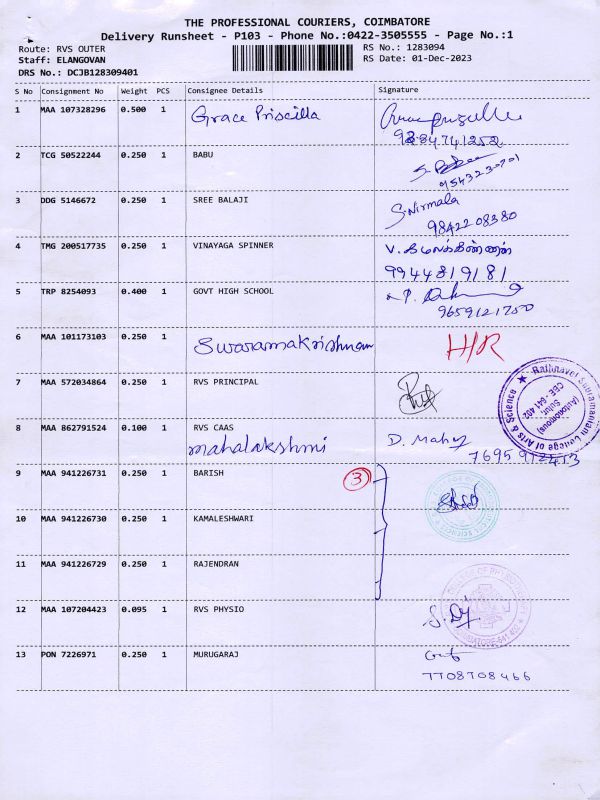 THE PROFESSIONAL COURIERS, COIMBATORE
Delivery Runsheet - P103 - Phone No.:0422-3505555 - Page No.:1
Route: RVS OUTER
RS No.: 1283094
Staff: ELANGOVAN
RS Date: 01-Dec-2023
DRS No.: DCJB128309401
S No Consignment No Weight PCS Consignee Details Signature
1 MAA 107328296 0.500 1 Grace Priscilla
9884741252
2 TCG 50522244 0.250 1 BABU
9543230701
3 DDG 5146672 0.250 1 SREE BALAJI S. Nirmala
9842208380
4 TMG 200517735 0.250 1 VINAYAGA SPINNER V. கமலக்கண்ணன்
9944819181
5 TRP 8254093 0.400 1 GOVT HIGH SCHOOL
9659121750
6 MAA 101173103 0.250 1 Swaramakrishnam H/R
7 MAA 572034864 0.250 1 RVS PRINCIPAL
Rathnavel Subramaniam College of Arts & Science
(Autonomous)
Sulur,
CBE - 641 402
8 MAA 862791524 0.100 1 RVS CAAS
mahalakshmi D. Mahy
7695972413
9 MAA 941226731 0.250 1 BARISH 3
10 MAA 941226730 0.250 1 KAMALESHWARI
11 MAA 941226729 0.250 1 RAJENDRAN
12 MAA 107204423 0.095 1 RVS PHYSIO
COIMBATORE-641 402
13 PON 7226971 0.250 1 MURUGARAJ
7708708466